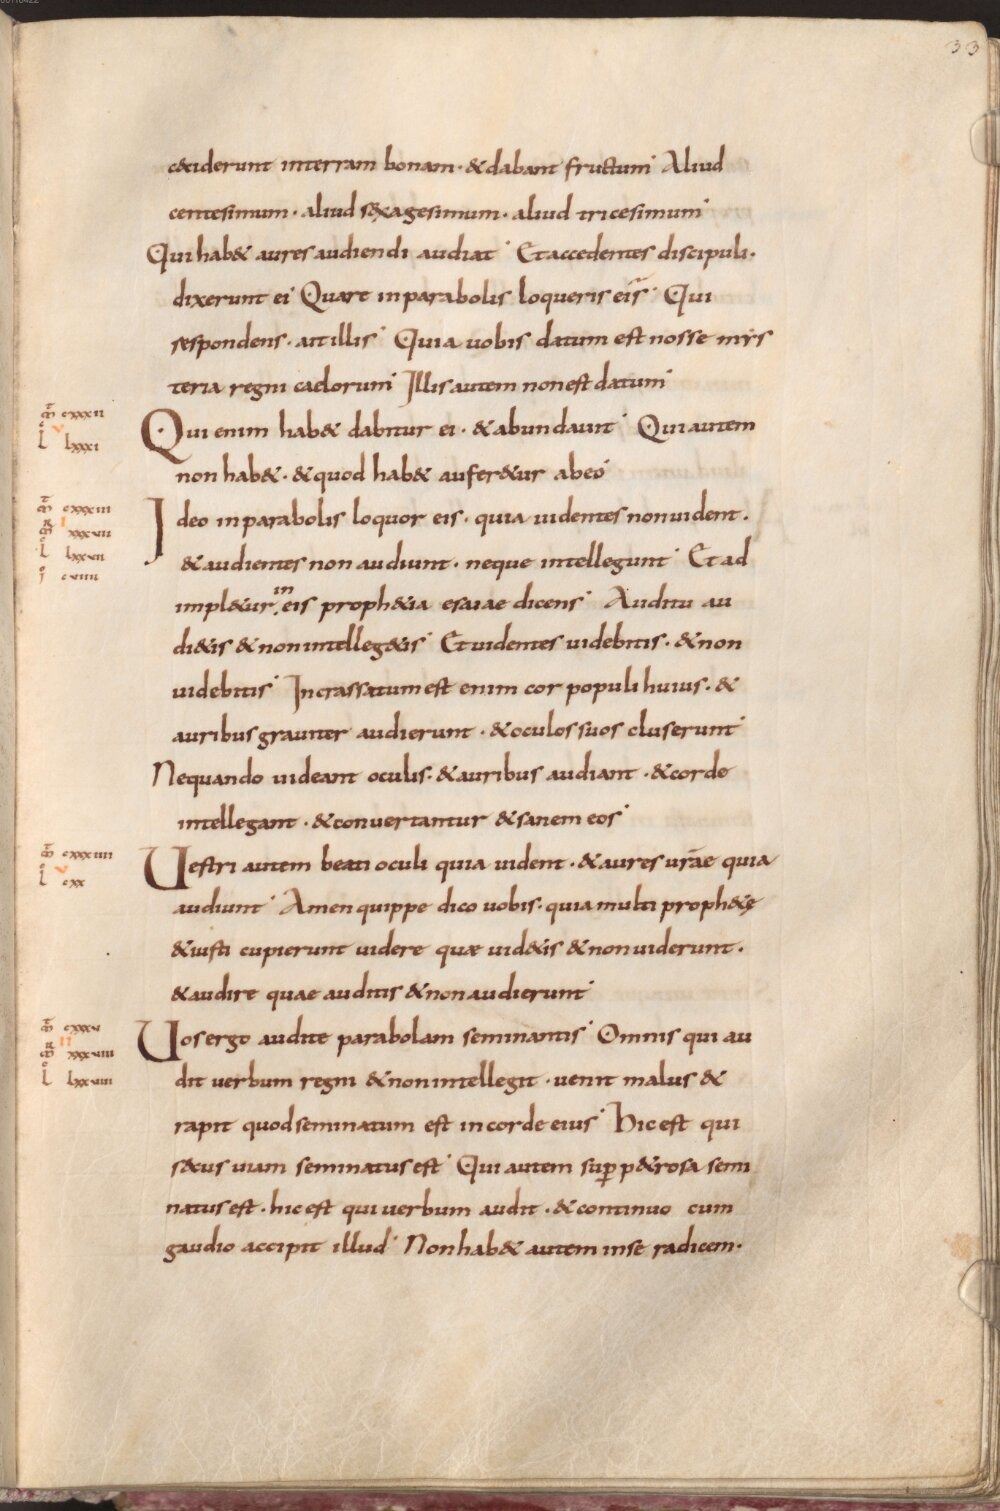 33
c&ciderunt interram bonam· &dabant fructum· Aliud
centesimum· aliud s&xagesimum· aliud tricesimum·
Qui hab& aures audiendi audiat· Et accedentes discipuli·
dixerunt ei· Quare inparabolis loqueris eis· Qui
respondens· ait illis· Quia uobis datum est nosse mys
teria regni caelorum· Illis autem non est datum·
m̄ cxxxii
l lxxxi
Qui enim hab& dabitur ei· &abundauit· Qui autem
non hab&· &quod hab& aufer&ur abeo·
m̄ cxxxiii
m̄ xxxvii
l lxxvii
i cviiii
Ideo inparabolis loquor eis· quia uidentes nonuident·
&audientes non audiunt· neque intellegunt· Et ad
impl&ur in eis proph&ia esaiae dicens· Auditu au
di&is &nonintelleg&is· Et uidentes uidebitis· &non
uidebitis· Incrassatum est enim cor populi huius· &
auribus grauiter audierunt· &oculos suos cluserunt·
Nequando uideant oculis· &auribus audiant· &corde
intellegant· &conuertantur &sanem eos·
m̄ cxxxiiii
l cxx
Uestri autem beati oculi quia uident· &aures ur̄ae quia
audiunt· Amen quippe dico uobis· quia multi proph&ę
&iusti cupierunt uidere quae uid&is &non uiderunt·
&audire quae auditis &non audierunt·
m̄ cxxxv
m̄ xxxviii
l lxxviii
Uos ergo audite parabolam seminantis· Omnis qui au
dit uerbum regni &nonintellegit· uenit malus &
rapit quod seminatum est in corde eius· Hic est qui
s&cus uiam seminatus est· Qui autem sup̱ p&rosa semi
natus est· hic est qui uerbum audit· &continuo cum
gaudio accipit illud· Non hab& autem inse radicem·